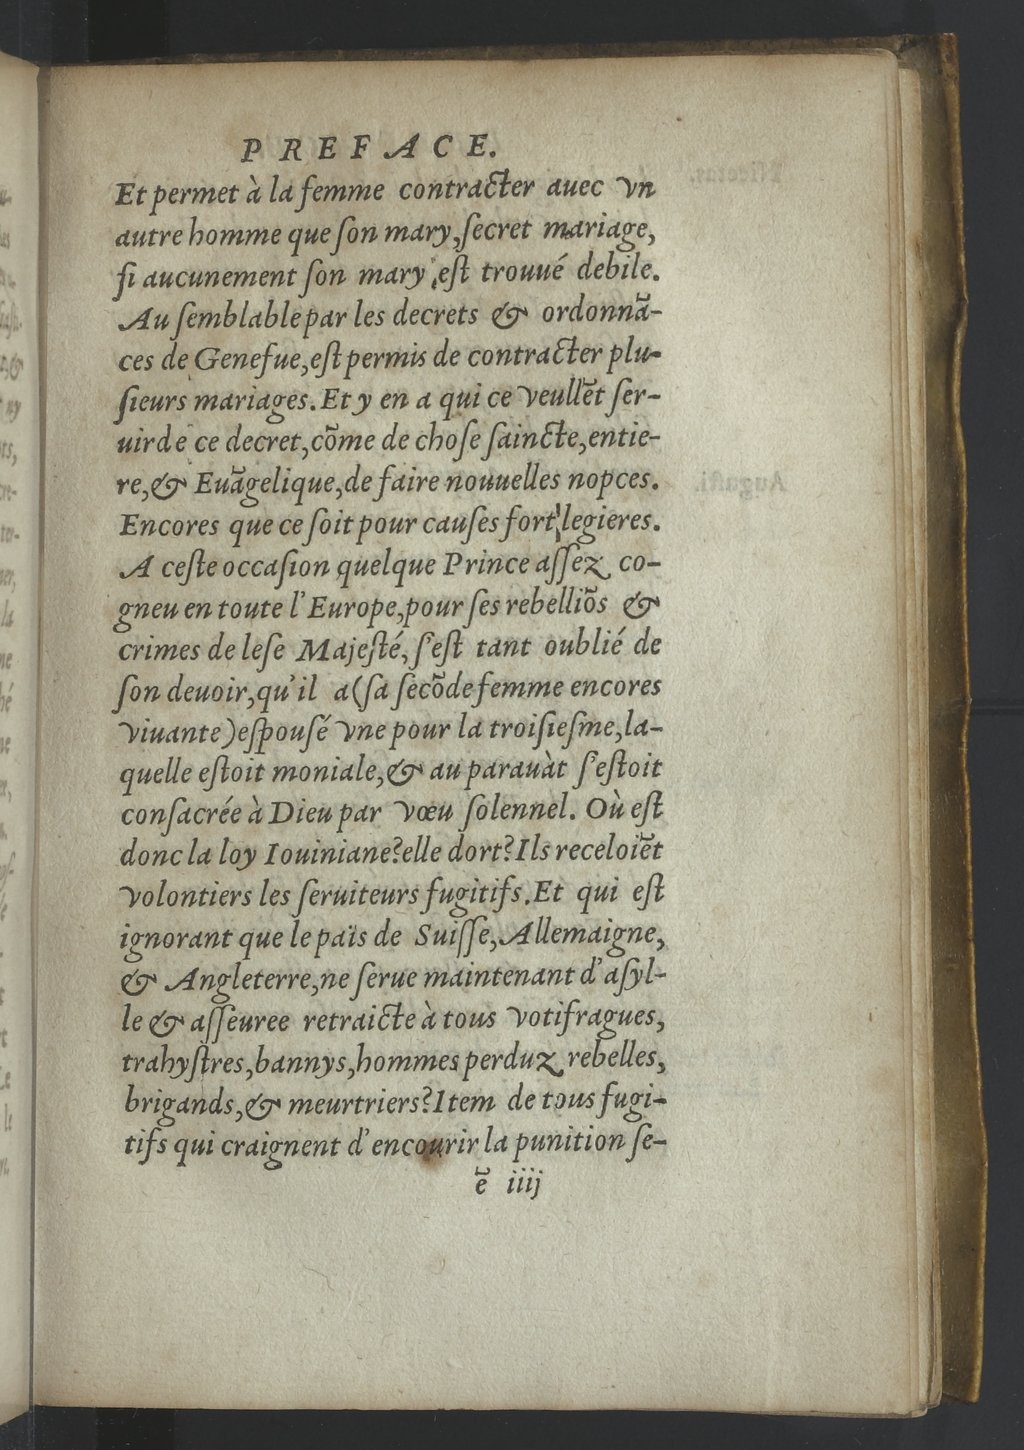 PREFACE.
Et permet à la femme contracter auec vn
autre homme que ſon mary, ſecret mariage,
ſi aucunement ſon mary eſt trouué debile.
Au ſemblable par les decrets & ordonnã-
ces de Genefue, eſt permis de contracter plu-
ſieurs mariages. Et y en a qui ce veullẽt ſer-
uir de ce decret, cõme de choſe ſaincte, entie-
re, & Euãgelique, de faire nouuelles nopces.
Encores que ce ſoit pour cauſes fort legieres.
A ceſte occaſion quelque Prince aſſez co-
gneu en toute l'Europe, pour ſes rebelliõs &
crimes de leſe Majeſté, ſ'eſt tant oublié de
ſon deuoir, qu'il a (ſa ſecõde femme encores
viuante) eſpouſé vne pour la troiſieſme, la-
quelle eſtoit moniale, & au parauàt ſ'eſtoit
conſacrée à Dieu par vœu ſolennel. Où eſt
donc la loy Iouiniane? elle dort? Ils receloiẽt
volontiers les ſeruiteurs fugitifs. Et qui eſt
ignorant que le païs de Suiſſe, Allemaigne,
& Angleterre, ne ſerue maintenant d'aſyl-
le & aſſeuree retraicte à tous votifragues,
trahyſtres, bannys, hommes perduz rebelles,
brigands, & meurtriers? Item de tous fugi-
tifs qui craignent d'encourir la punition ſe-
ẽ iiij